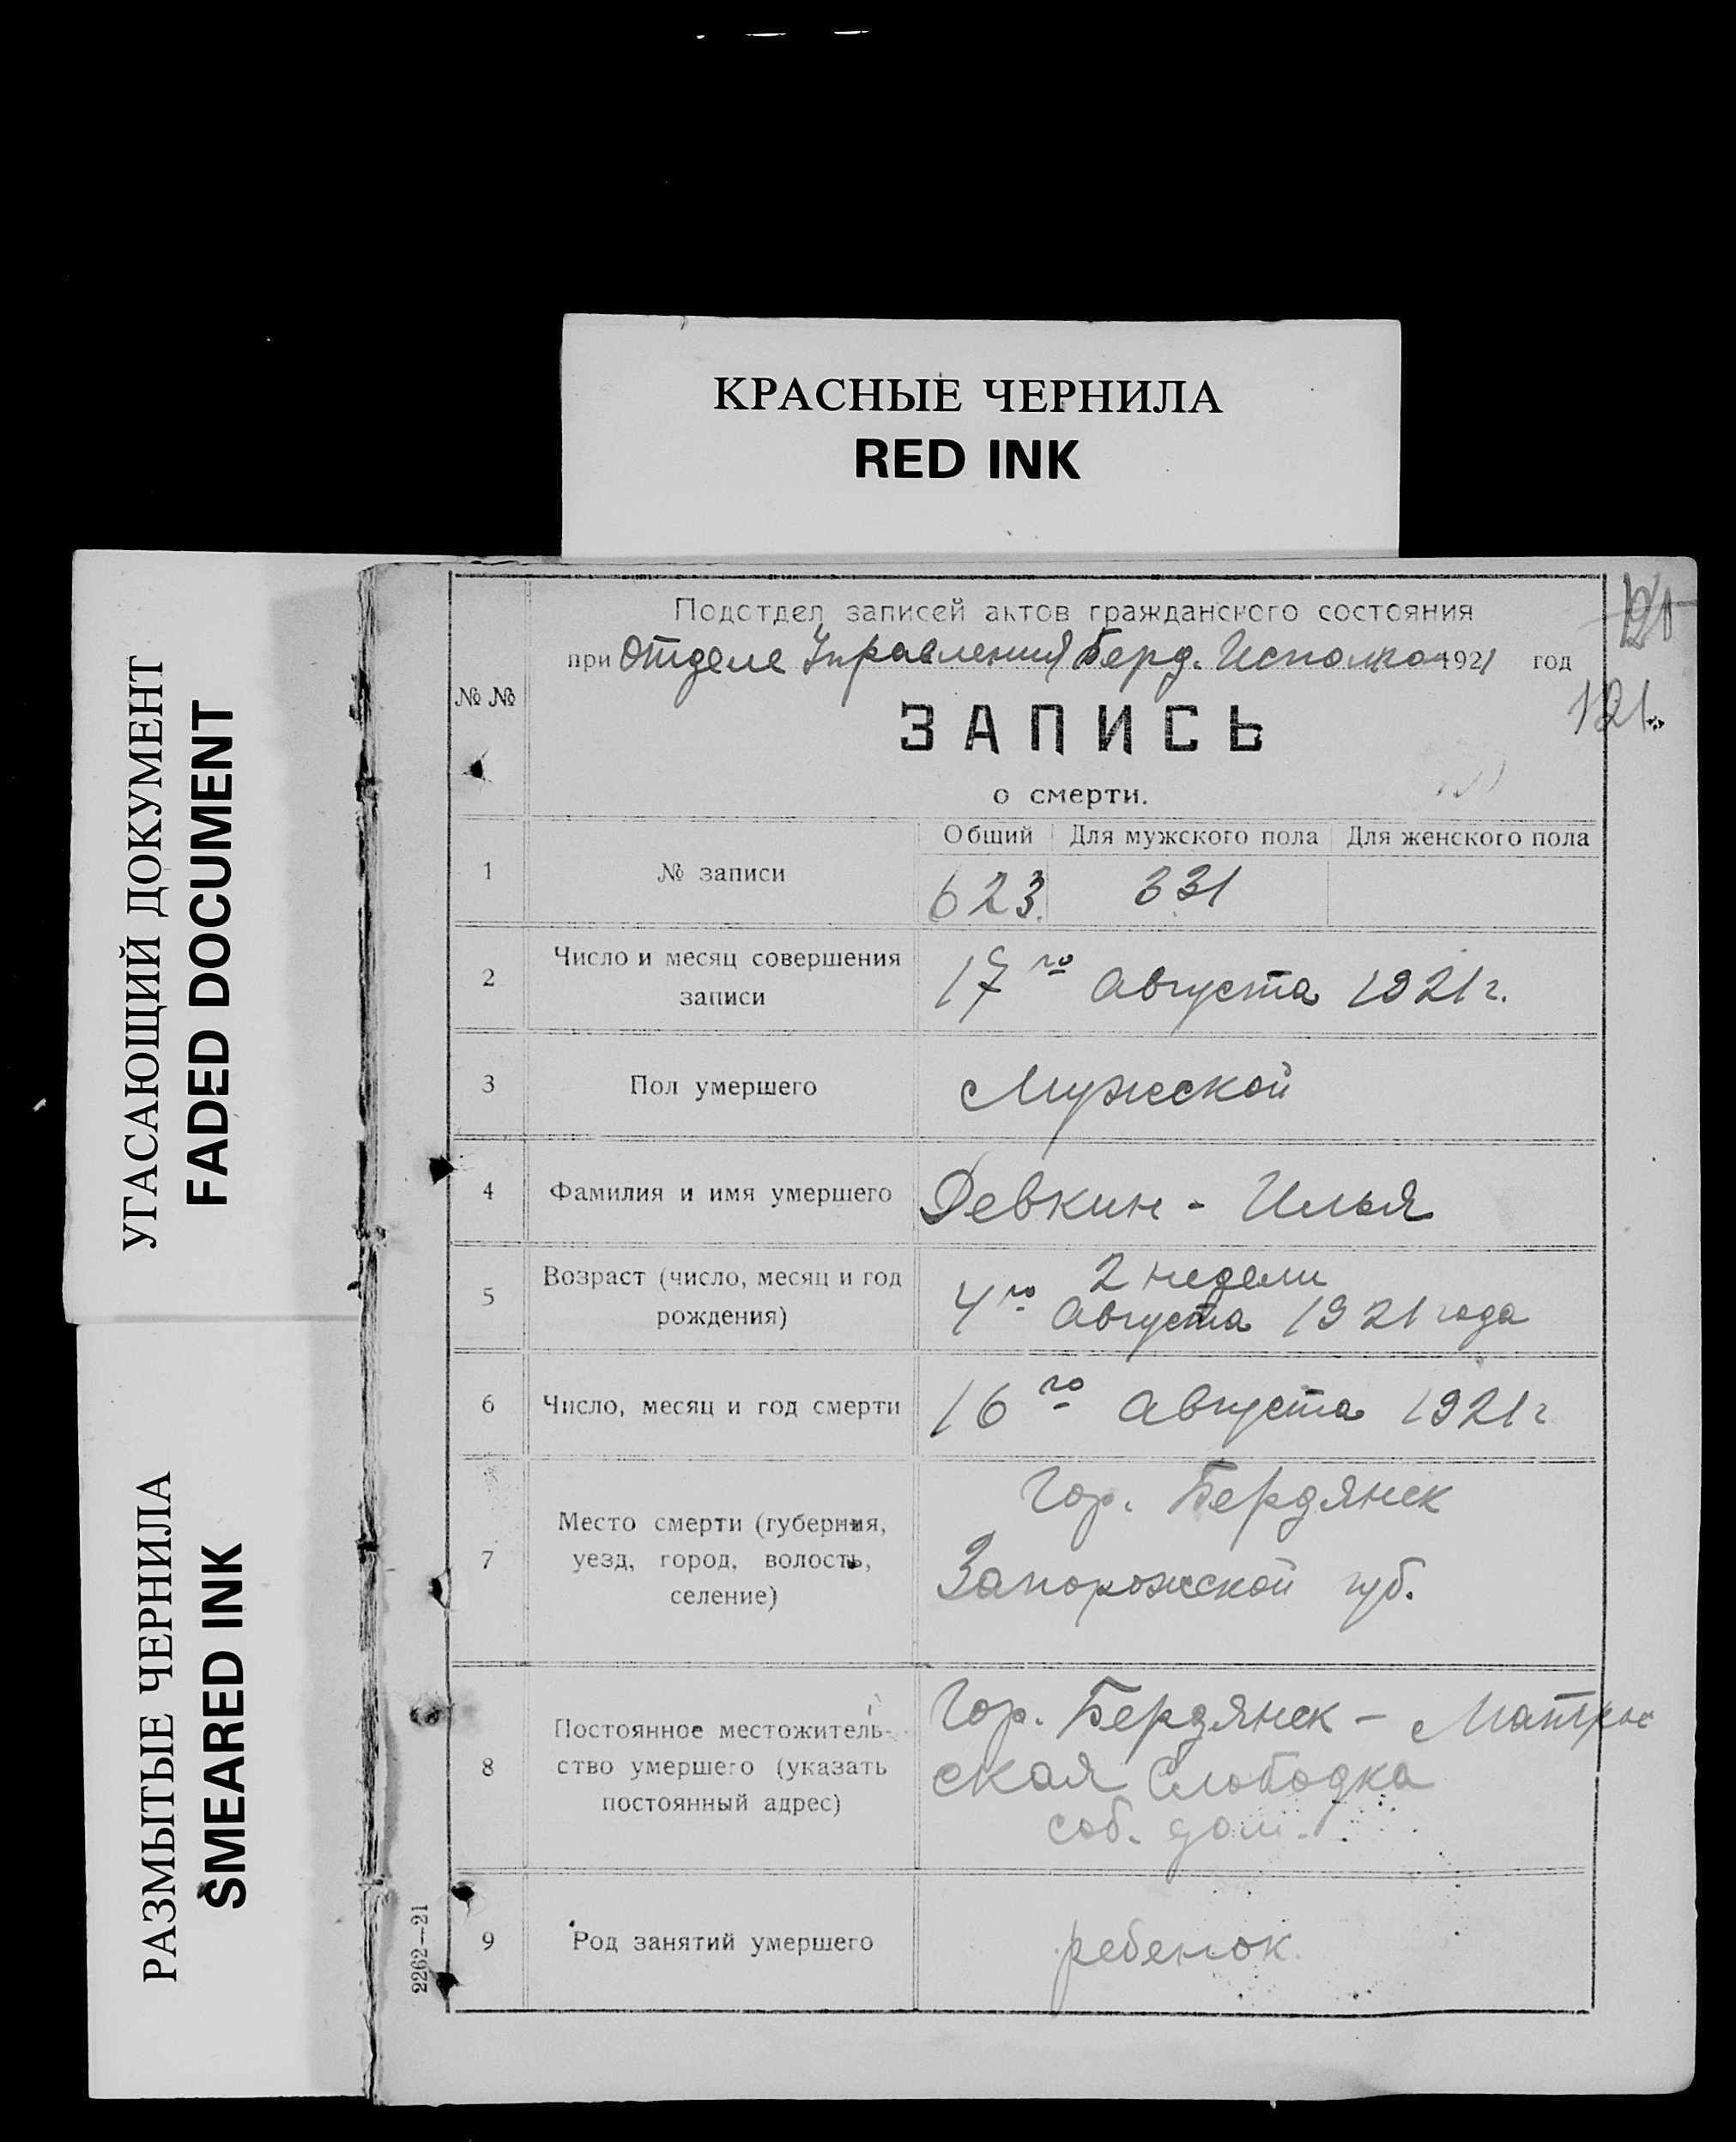 КРАСНЫЕ ЧЕРНИЛА
RED INK
УГАСАЮЩИЙ ДОКУМЕНТ
FADED DOCUMENT
РАЗМЫТЫЕ ЧЕРНИЛА
SMEARED INK
Подотдел записей актов гражданского состояния
при Отделе Управления Берд. Исполком 1921 год
121
№ №
ЗАПИСЬ
о смерти.
Общий Для мужского пола Для женского пола
1 № записи 623. 331
2 Число и месяц совершения
записи
17го Августа 1921 г.
3 Пол умершего Мужской
4 Фамилия и имя умершего Девкин - Илья
5 Возраст (число, месяц и год
рождения)
2 недели
4го Августа 1921 года
6 Число, месяц и год смерти 16го Августа 1921 г
7 Место смерти (губерния,
уезд, город, волость,
селение)
Гор. Бердянск
Запорожской губ.
8 Постоянное местожитель-
ство умершего (указать
постоянный адрес)
Гор. Бердянск - Матрос
ская Слободка
соб. дом.
9 Род занятий умершего ребенок.
2262—21